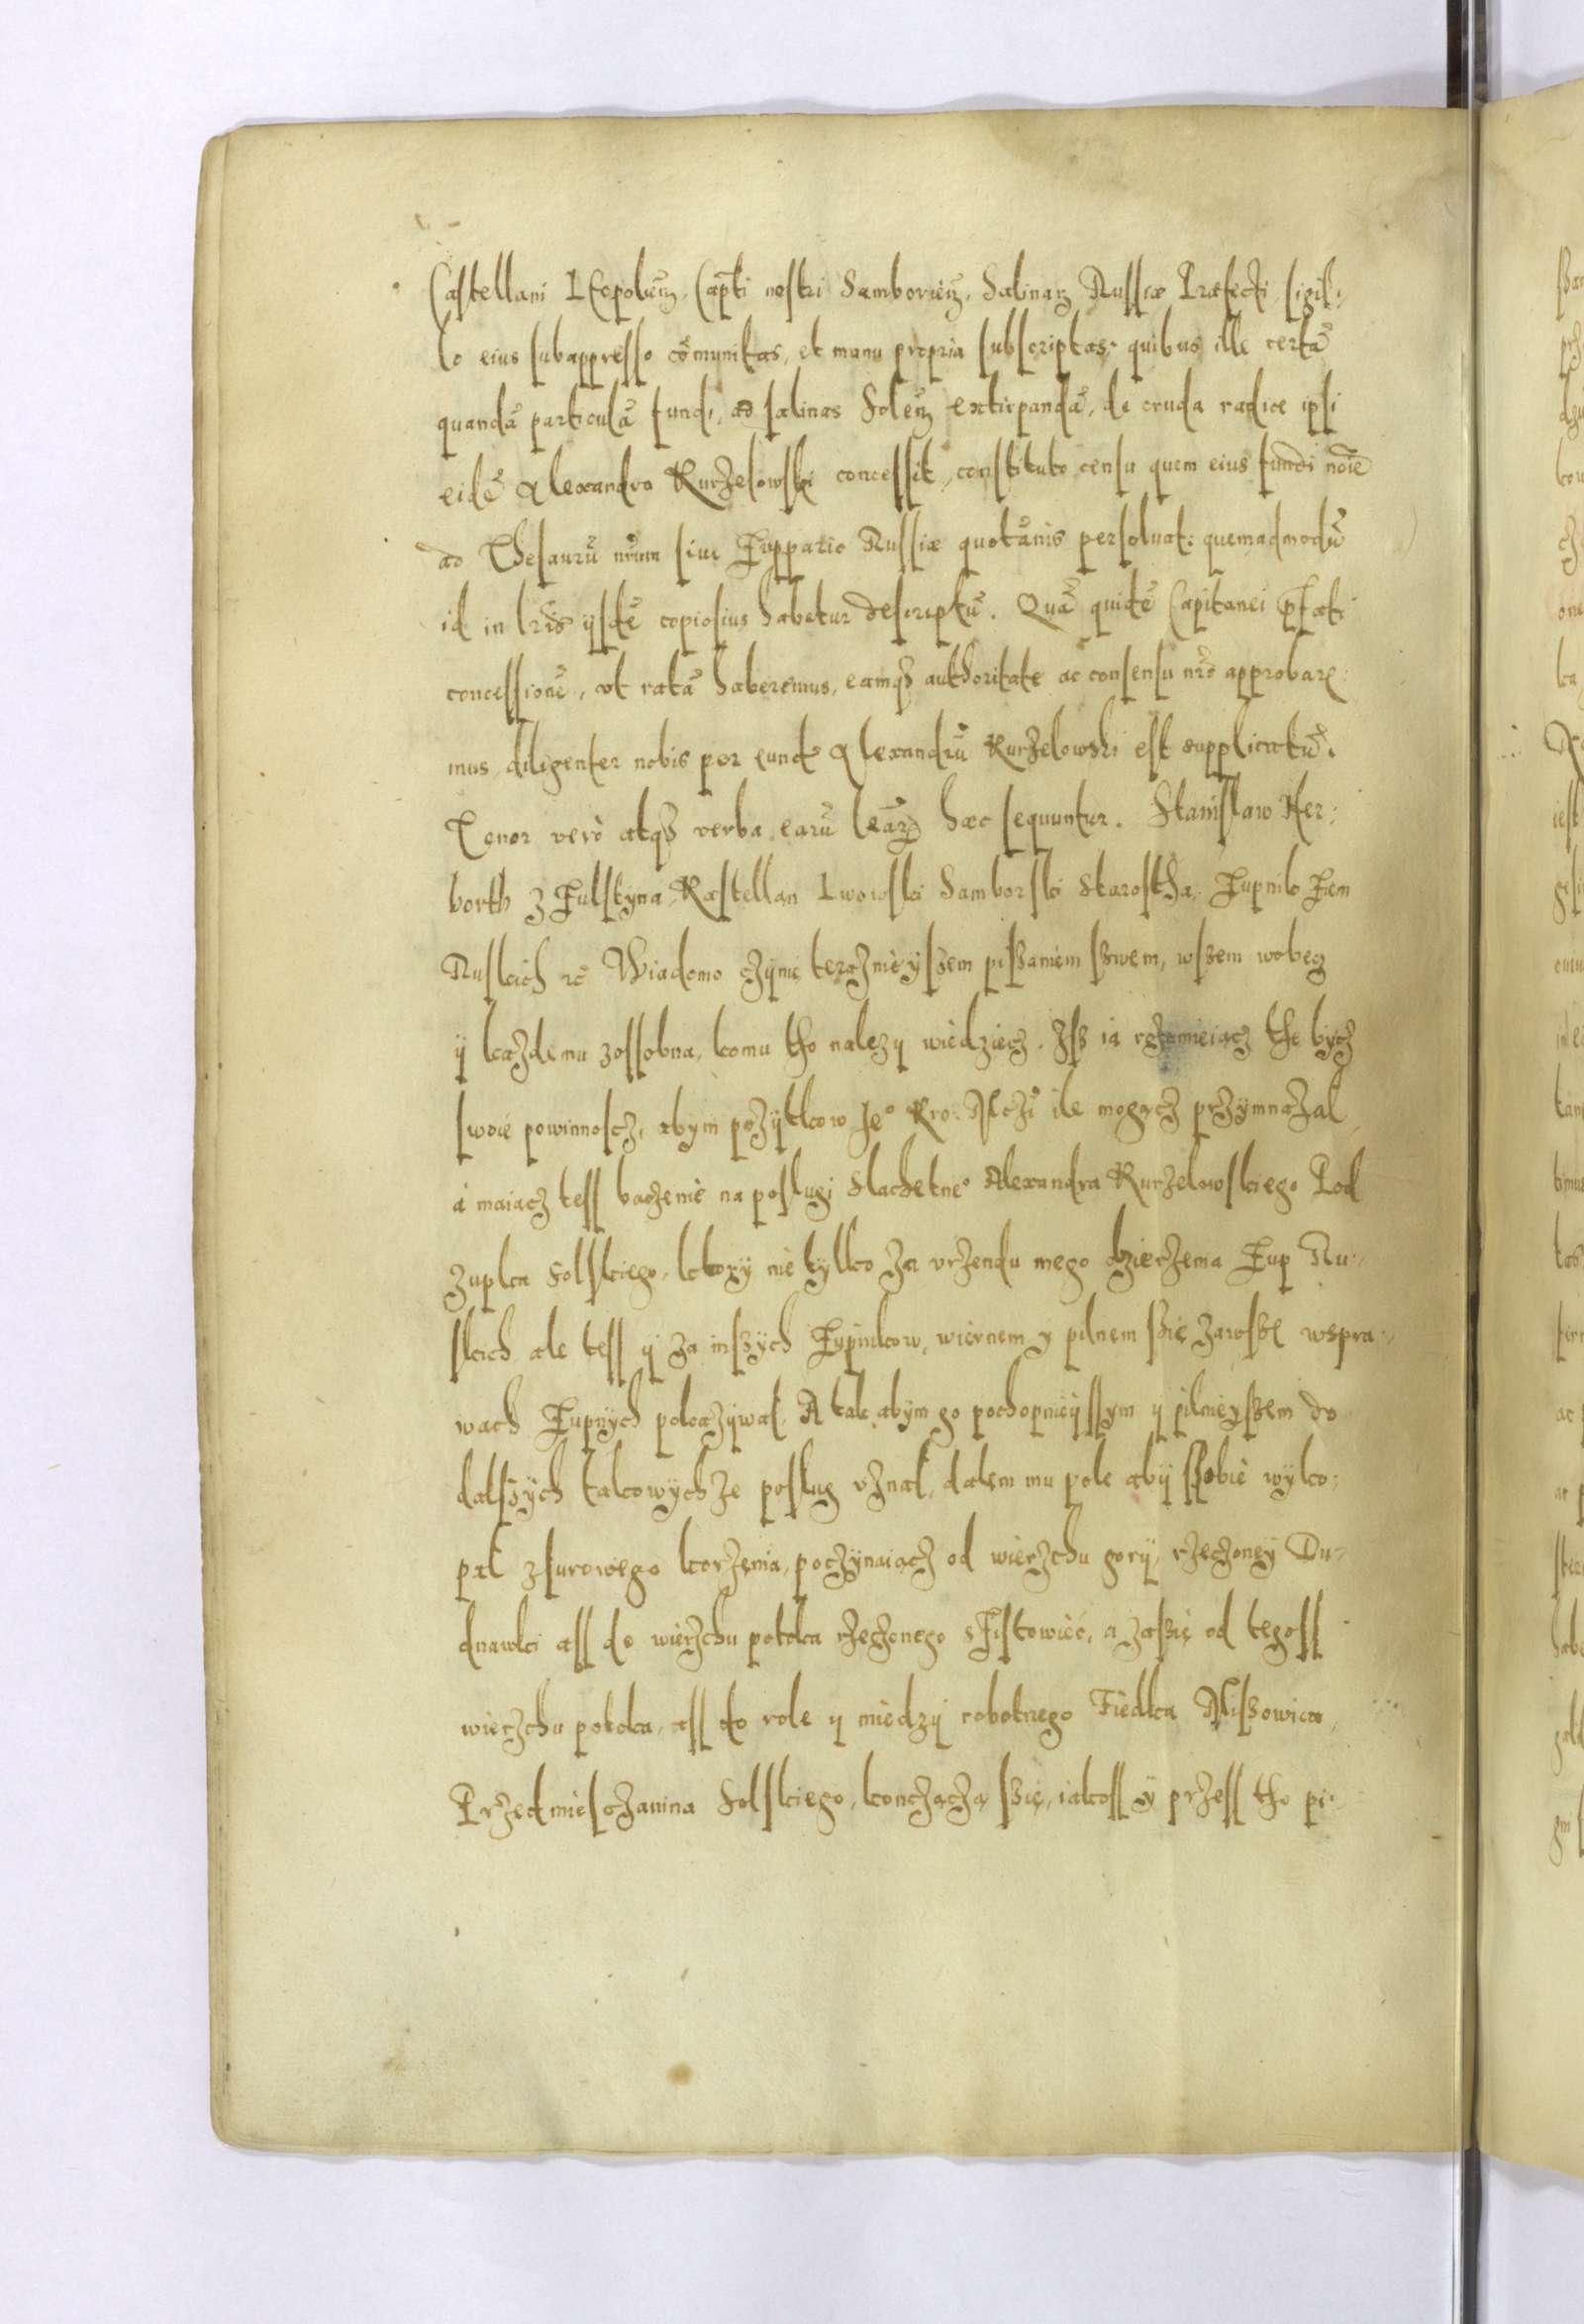 Castellani LEopolieñ. Capti nostri Samborieñ, Salinarz Russiæ Præfecti, sigil¬
lo eius subappresso com̃unitas, et manu propria subscriptas: quibus ille certã
quandã particulã fundi, ad salinas Soleñ extirpandã, de cruda radice ipsi
eidẽ Alexandro Kurzelowski concessit, constituto censu quem eius fundi noĩe
ad Thesaurũ nrũm siue Zuppario Russiæ quotãnis persoluat: quemadmodũ
id in lris ijsdẽ copiosius habetur descriptũ. Quã quidẽ Capitanei p̃fati
concessionẽ, vt ratã haberemus, eamqȝ authoritate ac consensu nrõ approbare¬
mus, diligenter nobis per eundẽ Alexandrũ Kurzelowski est supplicatũ.
Tenor verò atqȝ verba earũ lrãrũ hæc sequuntur. Stanislaw Her¬
borth z Fulstyna, Kastellan Lwowski Samborski Starostha, Zupnik Zem
Ruskich rc̃ Wiadomo czÿnię terazniéÿszem piszaniem szwem, wszem wobeg
ÿ kazdemu zossobna, komu tho nalezÿ wiedziecz. Isz ia rozumieiącz the bycz
swoię powinnoscz, abym pozÿtkow Je° Kro. Mczi ile mogącz przymnazal,
á maiącz tess baczenié na poslugi Slachetne° Alexandra Kurzelowskiego Pod
zupka Solskiego, ktorÿ nié tylko za vrzendu mego dzierzenia Zup Ru¬
skich ale tess ÿ za inszÿch Zupnikow, wiernem y pilnem szię zawsze wspra¬
wach Zupnÿch pokazÿwał. A tak abÿm go pochopnieÿssym ÿ pilnieyszem do
dalszÿch takowÿchze poslug vznal, dalem mu pole abÿ szobié wÿko¬
pał zsurowego korzenia, poczynaiącz od wierzchu gorÿ, rzeczoney Du¬
dnawki ass do wierzchu potoka rzeczonego sZistowiéc, a zaszię od tegoss
wierzchu potoka, ass do role ÿ miedzÿ robotnego Fiedka Miszowica
Przedmiesczanina Solskiego, konczącza szię, iakoss ÿ przess tho pi¬